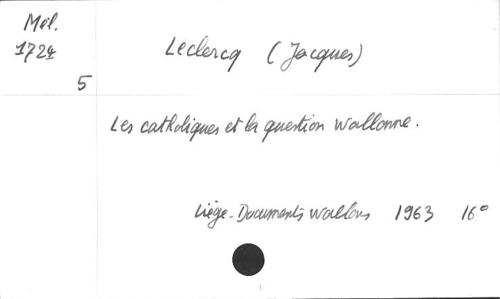 Mel.
1724
5
Leclercq (Jacques)
Les catholiques et la question wallonne.
Liège - Documents wallons 1963 16°